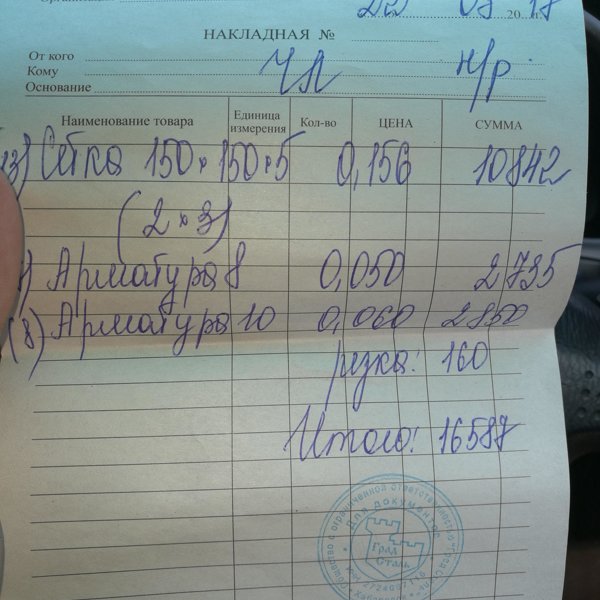 20 18 г.
НАКЛАДНАЯ №
От кого
Кому ЧЛ н/р
Основание
Наименование товара Единица измерения Кол-во ЦЕНА СУММА
13) Сетка 150×150×5 0,156 10842
(2×3)
) Арматура 8 0,050 2735
(8) Арматура 10 0,060 2850
резка: 160
Итого: 16587
Для документов
Град Сталь